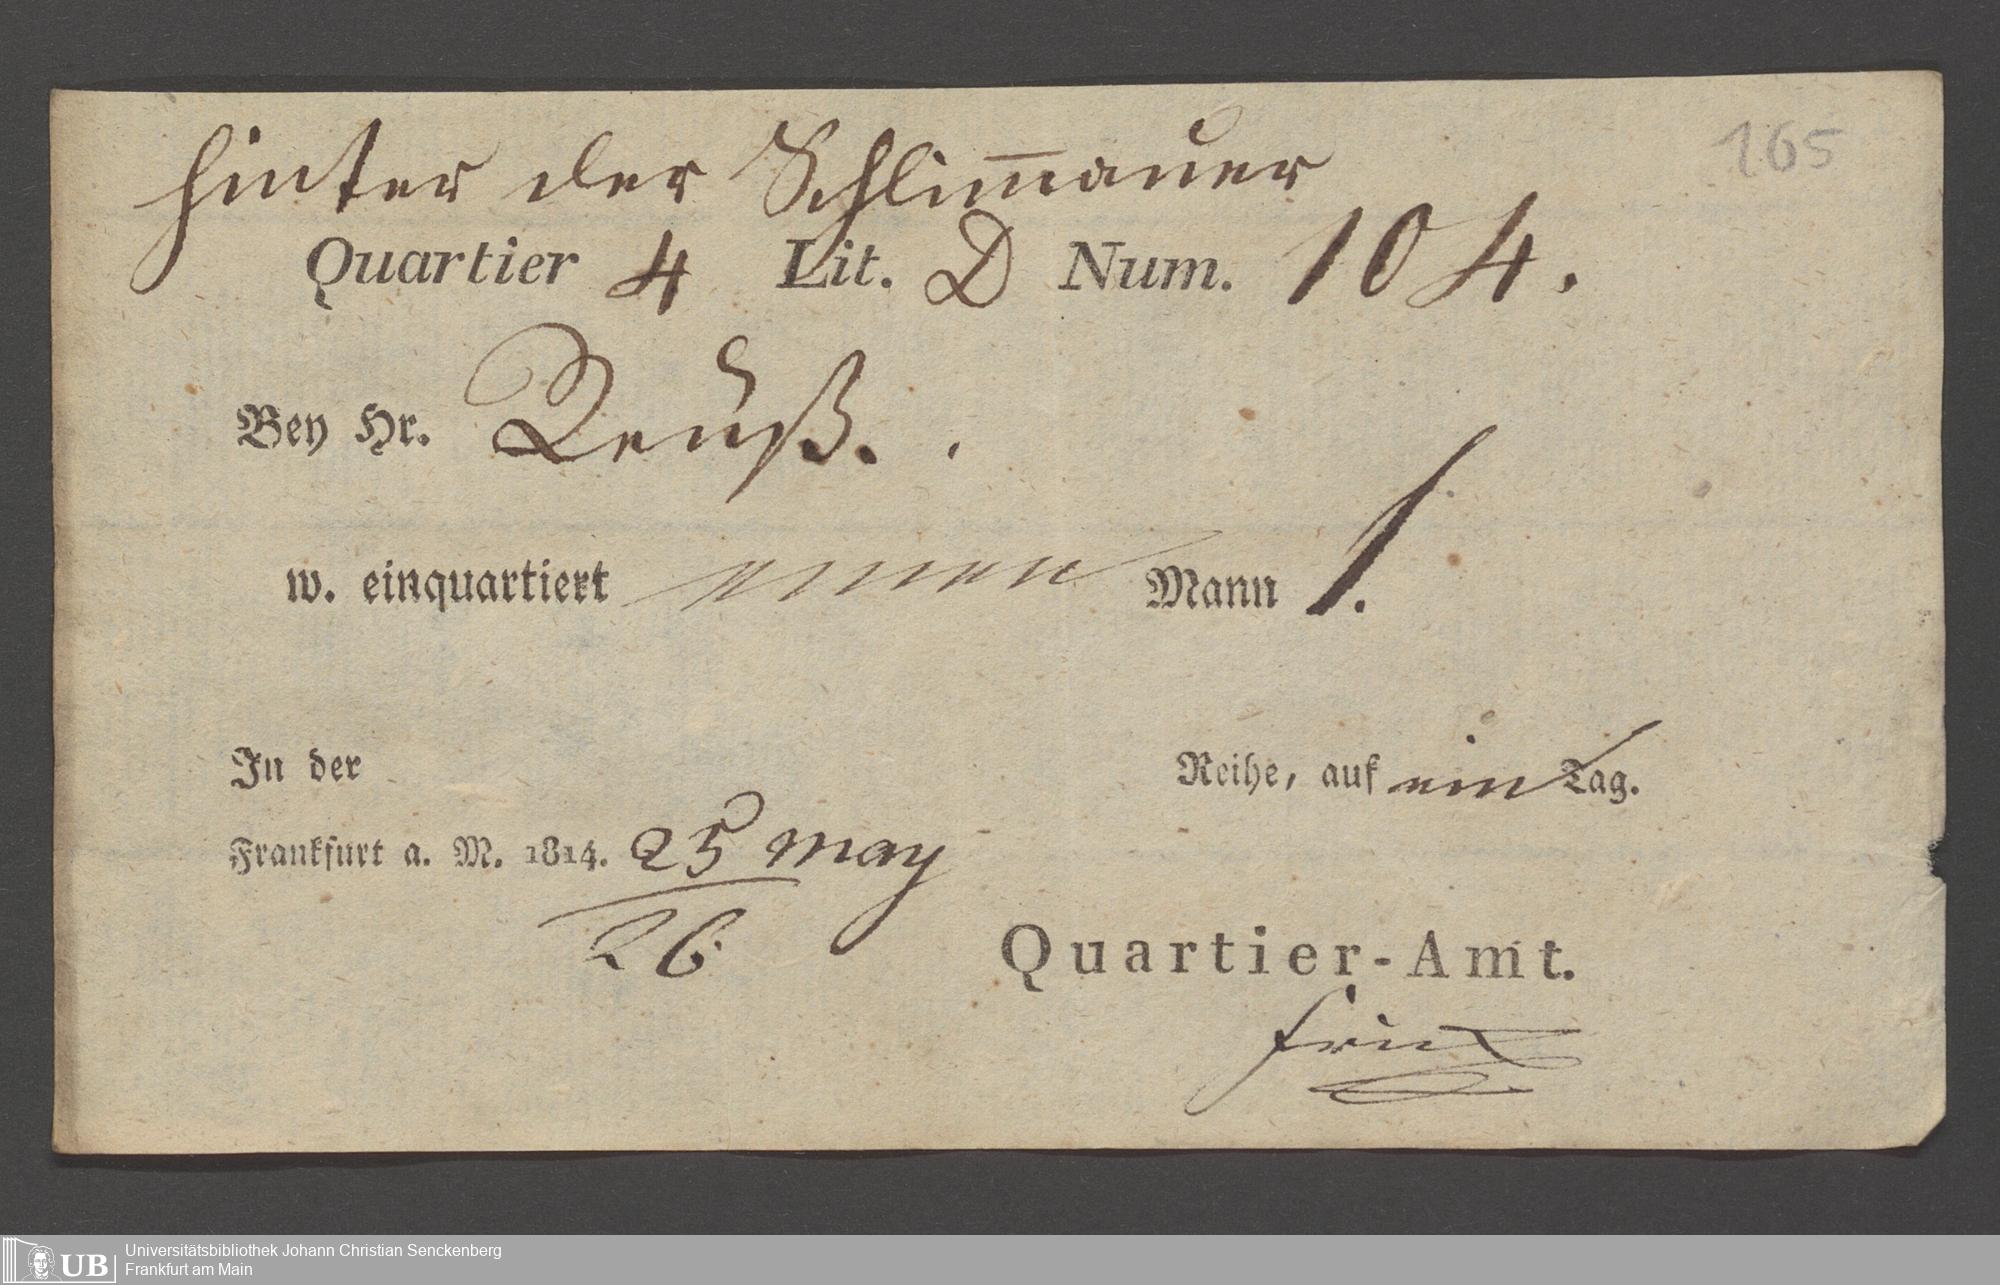 165
hinter der Schlim̅auer
Quartier 4 Lit. D Num. 104.
Bey Hr. Reuß.
w. einquartiert einen Mann 1.
In der Reihe, auf ein Tag.
Frankfurt a. M. 1814. 25 may
26
Quartier-Amt.
UB Universitätsbibliothek Johann Christian Senckenberg
Frankfurt am Main